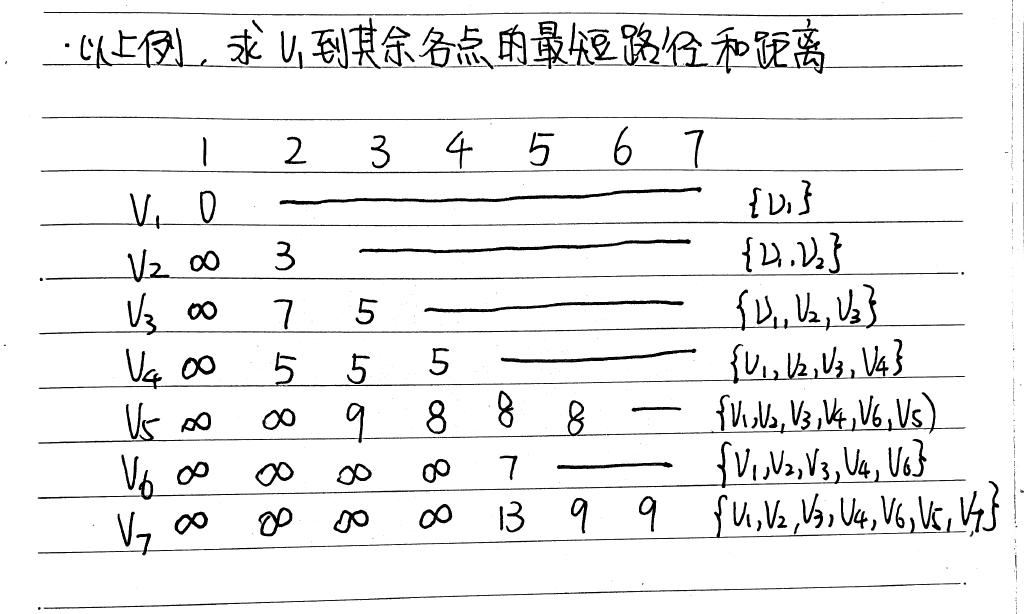 ·以上例，求 V₁到其余各点的最短路径和距离
1 2 3 4 5 6 7
V₁ 0 — {V₁}
V₂ ∞ 3 — {V₁,V₂}
V₃ ∞ 7 5 — {V₁,V₂,V₃}
V₄ ∞ 5 5 5 — {V₁,V₂,V₃,V₄}
V₅ ∞ ∞ 9 8 8 8 — {V₁,V₂,V₃,V₄,V₆,V₅)
V₆ ∞ ∞ ∞ ∞ 7 — {V₁,V₂,V₃,V₄,V₆}
V₇ ∞ ∞ ∞ ∞ 13 9 9 {V₁,V₂,V₃,V₄,V₆,V₅,V₇}